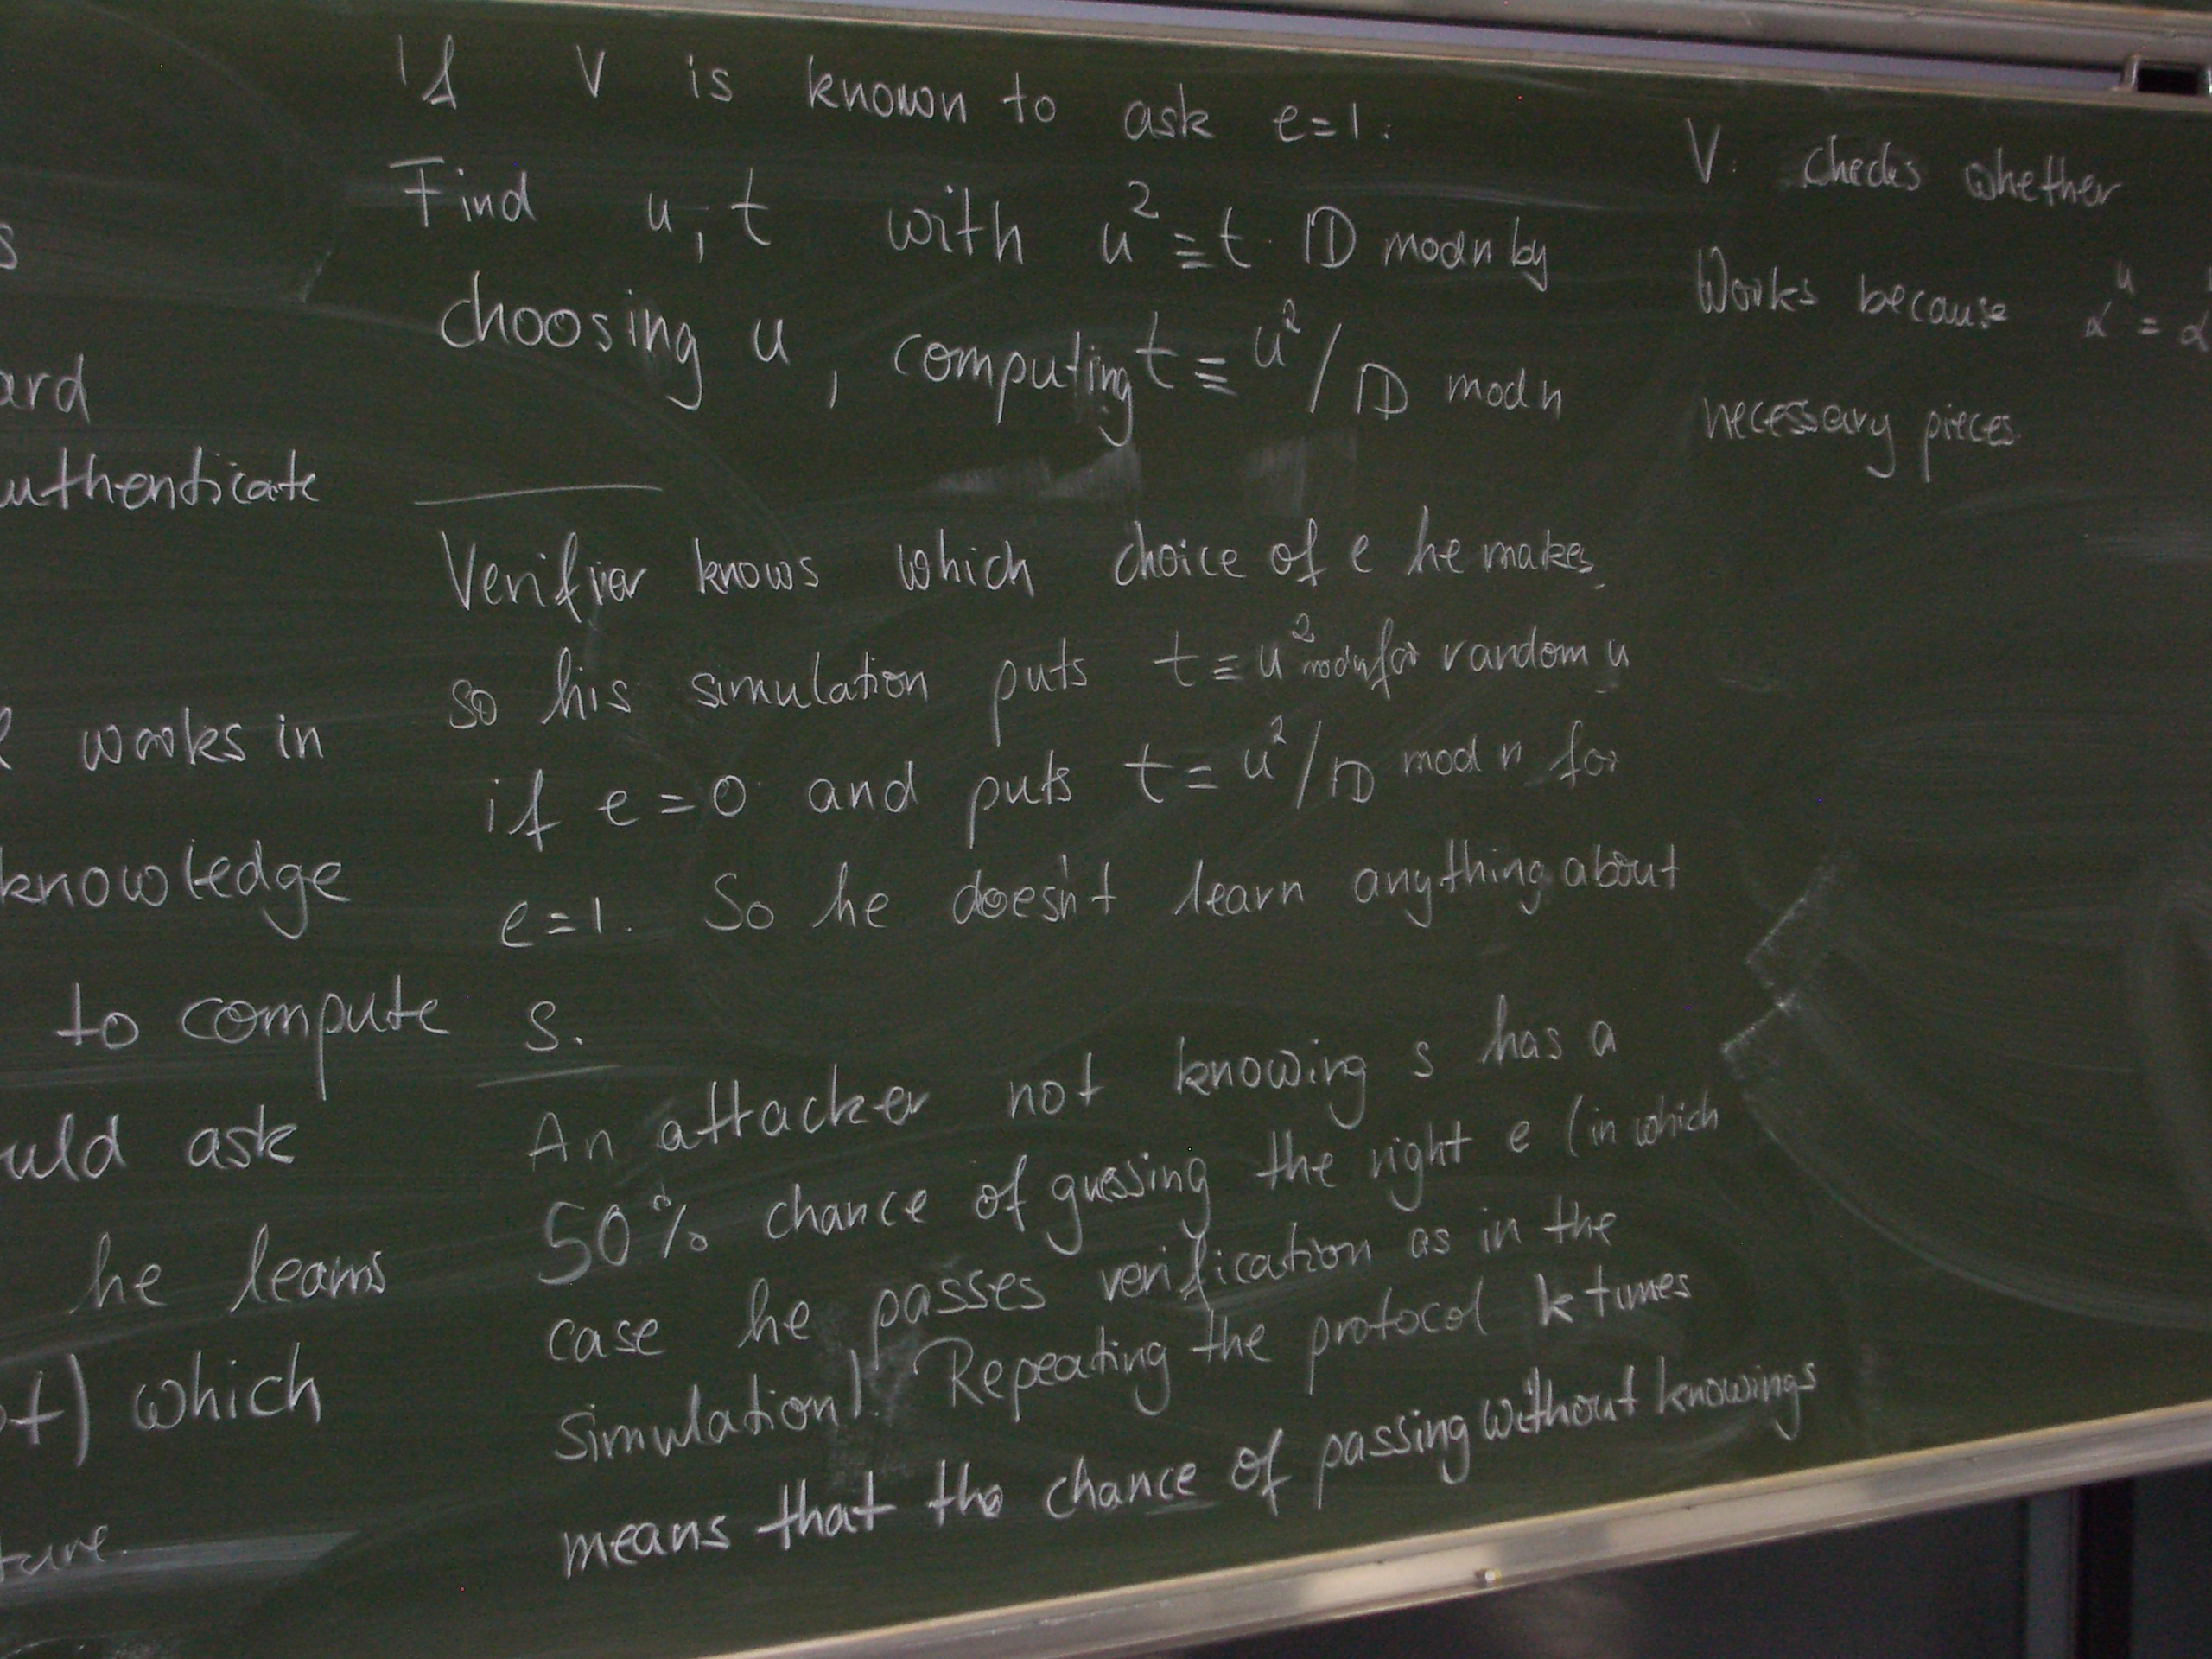 s
ard
uthenticate
works in
knowledge
to compute
uld ask
he learns
t) which
ture.
If V is known to ask e=1:
Find u, t with u² ≡ t · ID mod n by
choosing u, computing t ≡ u²/ID mod n
Verifier knows which choice of e he makes,
so his simulation puts t ≡ u² mod n for random u
if e=0 and puts t ≡ u²/ID mod n for
e=1. So he doesn't learn anything about
s.
An attacker not knowing s has a
50% chance of guessing the right e (in which
case he passes verification as in the
simulation). Repeating the protocol k times
means that the chance of passing without knowing s
V: checks whether
Works because α^u = α
necessary pieces.